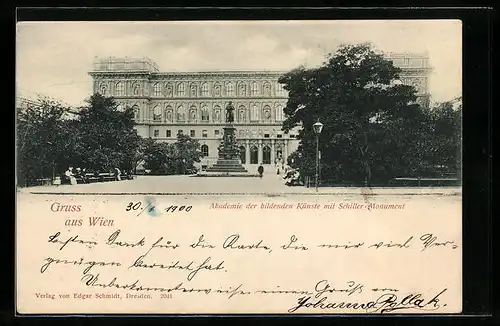 Gruss
aus Wien
30/1 1900
Akademie der bildenden Künste mit Schiller-Monument
Besten Dank für die Karte, die mir viel Ver-
gnügen bereitet hat.
Unbekannterweise einen Gruß von
Johanna Pollak.
Verlag von Edgar Schmidt, Dresden. 2041